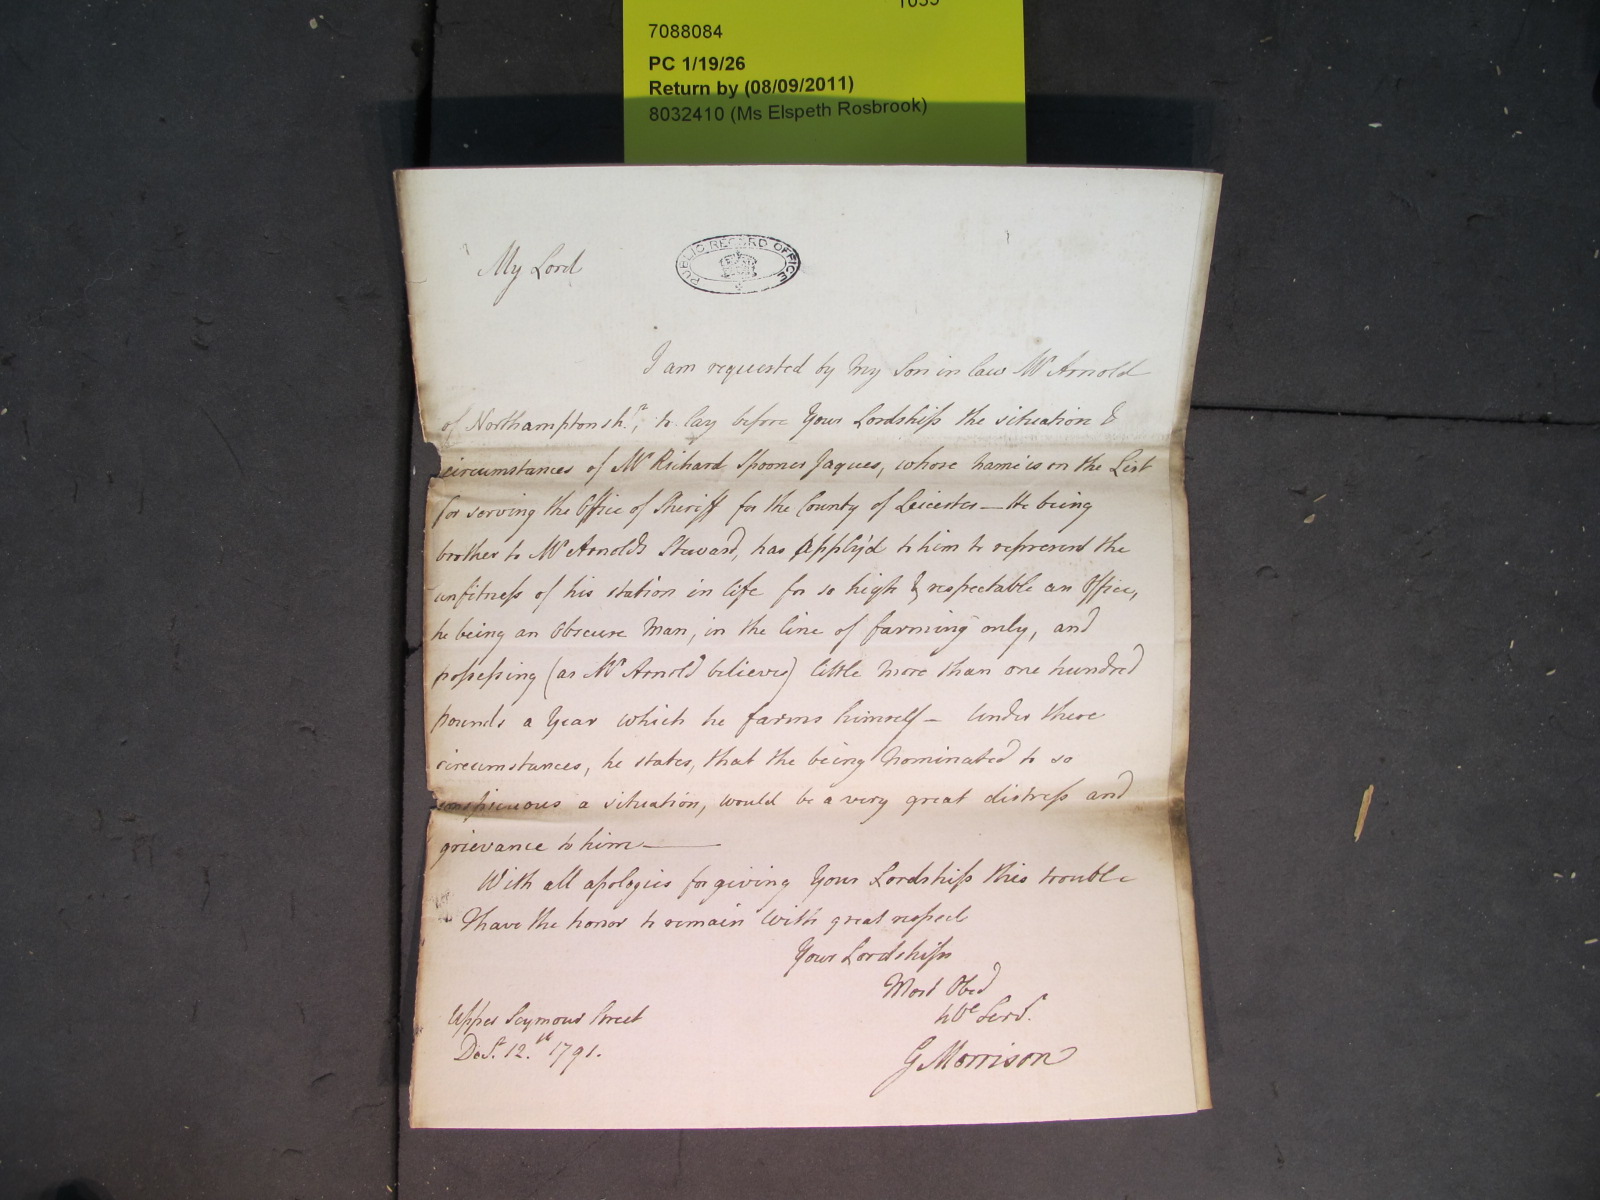 7088084
PC 1/19/26
Return by (08/09/2011)
8032410 (Ms Elspeth Rosbrook)
PUBLIC RECORD OFFICE
My Lord
I am requested by my Son in law Mr Arnold
of Northamptonshre, to lay before Your Lordship the situation &
circumstances of Mr Richard Spooner Jaques, whose name is on the List
for serving the Office of Sheriff for the County of Leicester — He being
brother to Mr Arnolds Steward, has Apply'd to him to represent the
unfitness of his station in life for so high & respectable an Office,
he being an Obscure Man, in the line of farming only, and
possessing (as Mr Arnold believes) little more than one hundred
pounds a Year which he farms himself — Under these
circumstances, he states, that the being Nominated to so
conspicuous a situation, would be a very great distress and
grievance to him —
With all apologies for giving Your Lordship this trouble
I have the honor to remain With great respect
Your Lordships
Most Obed
hble Servt.
G Morrison
Upper Seymour Street
Decr. 12.th 1791.